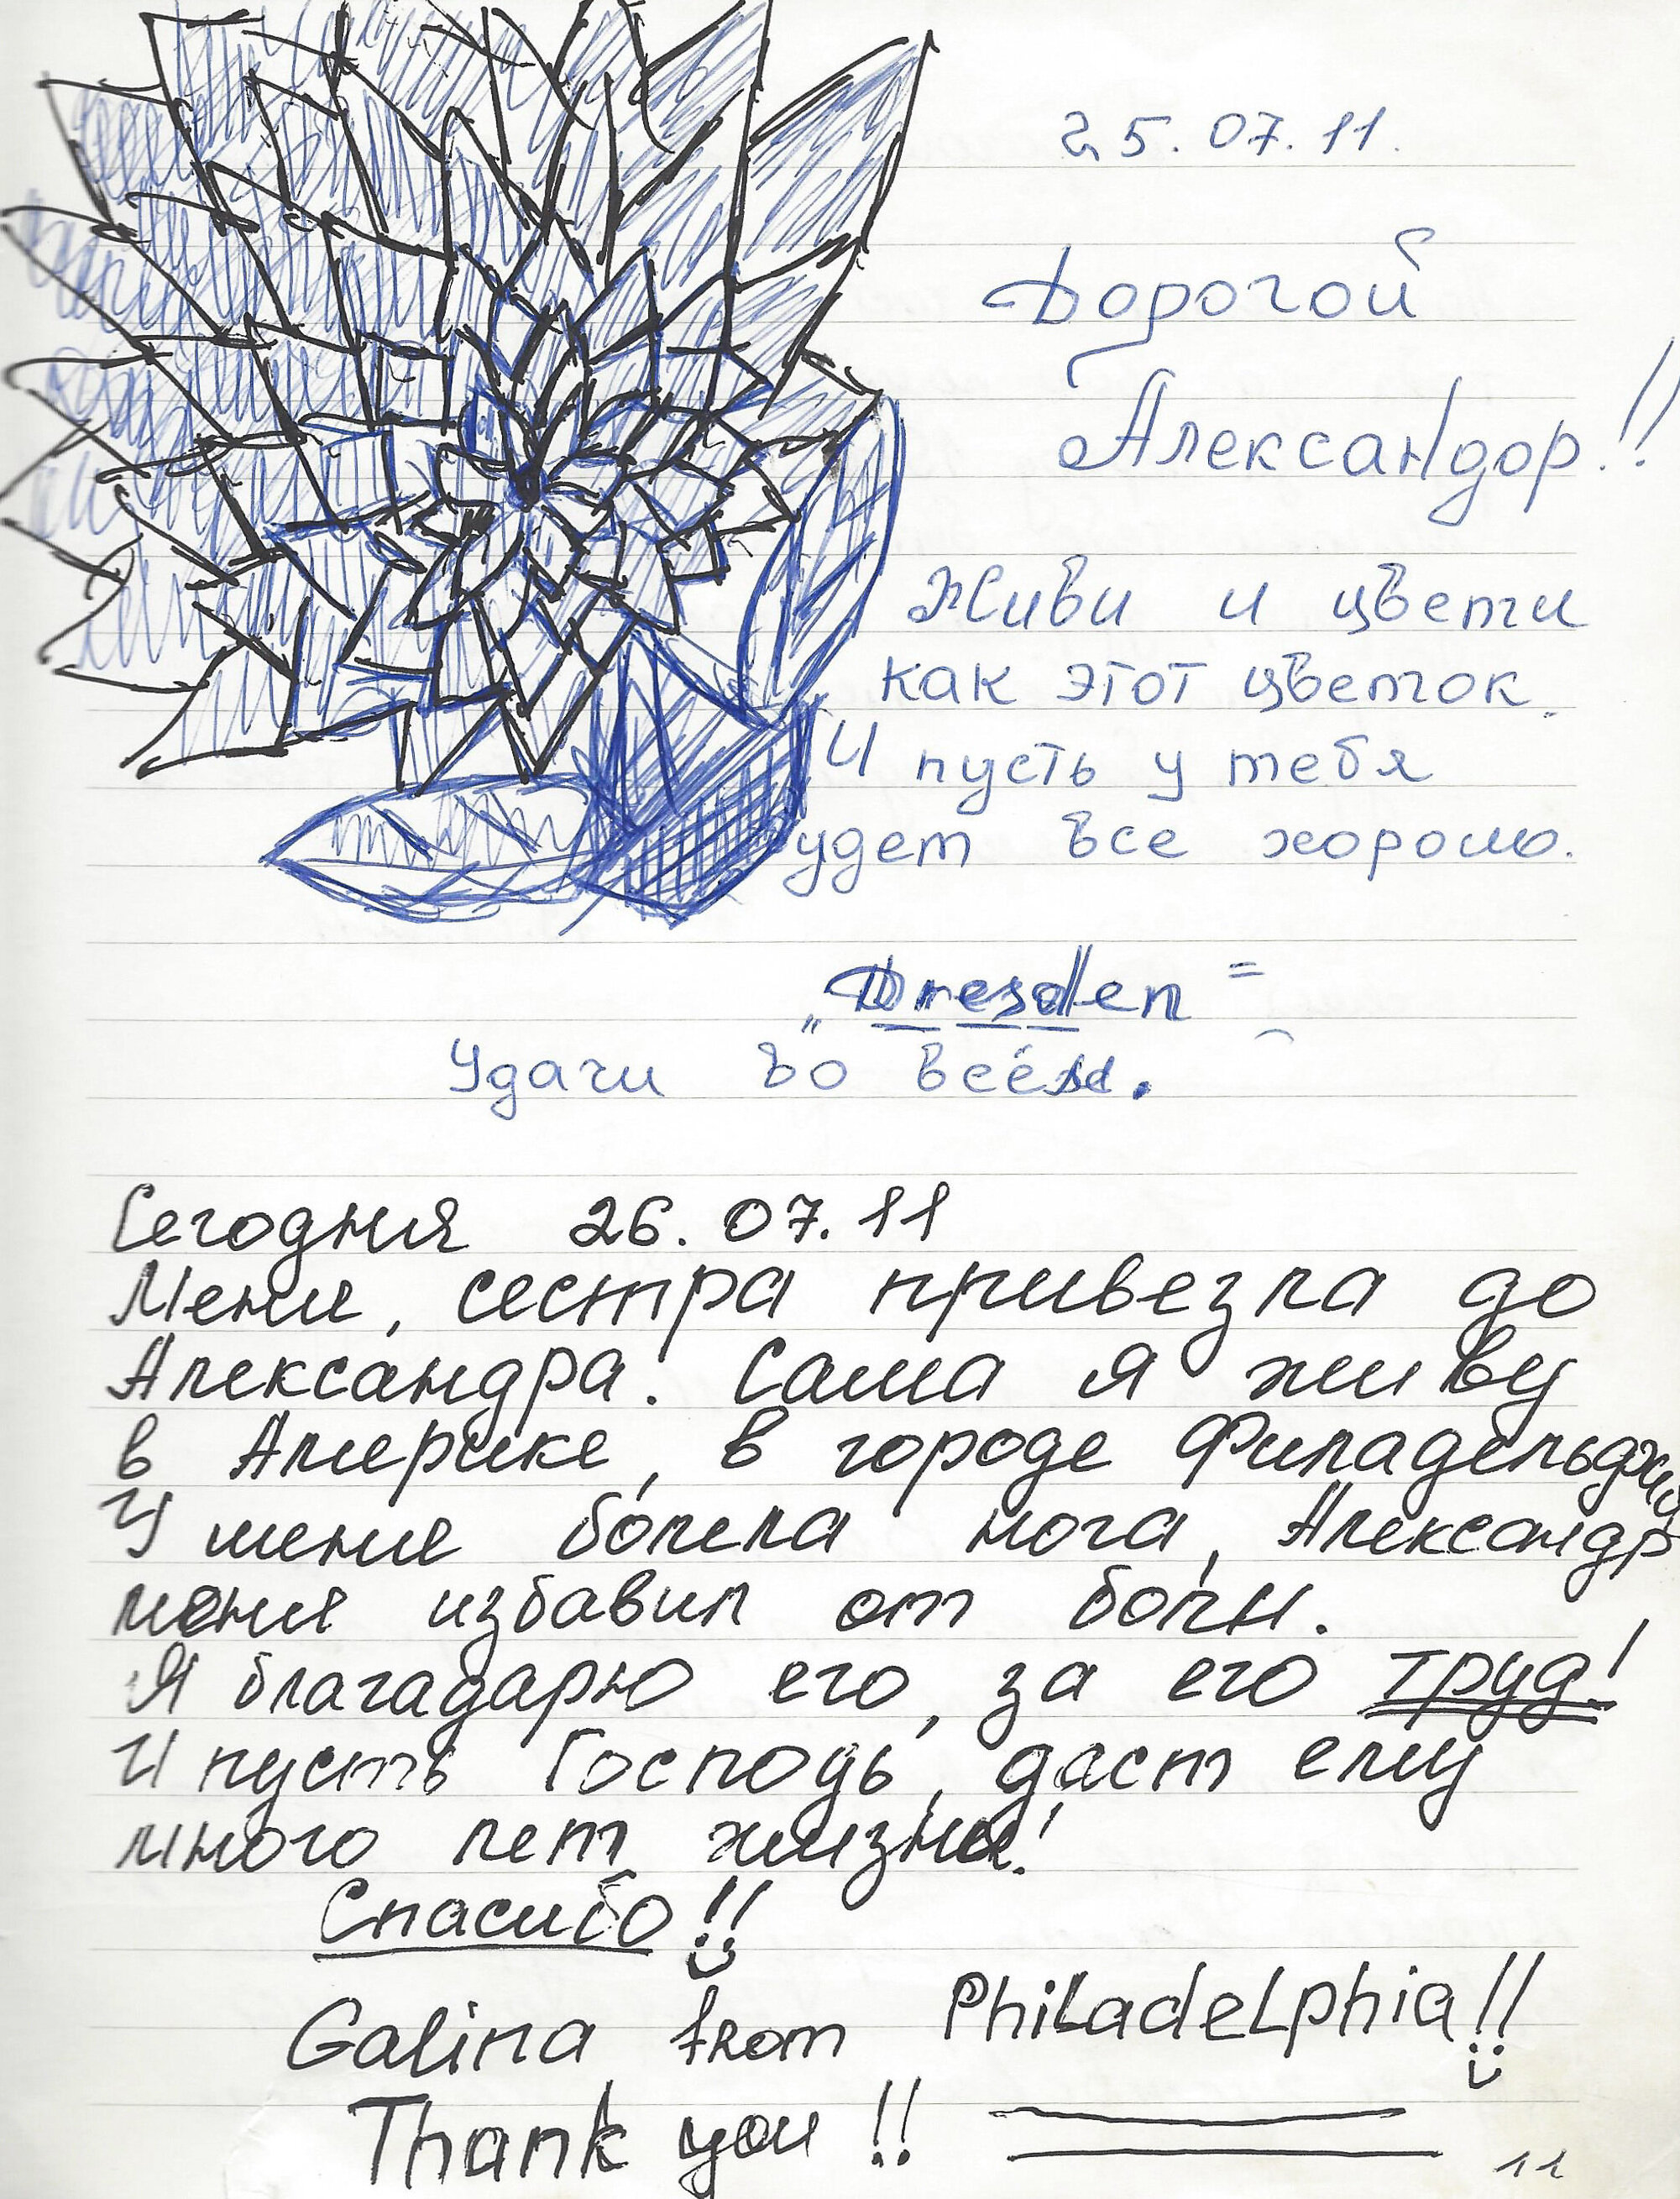 25.07.11.
Дорогой
Александор!!
Живи и цвети
как этот цветок.
И пусть у тебя
будет все хорошо.
„Dresden"
Удачи во всём.
Сегодня 26.07.11
Меня, сестра привезла до
Александра. Саша я живу
в Америке, в городе Филадельфии
У меня болела нога, Александр
меня избавил от боли.
Я благадарю его, за его труд!
И пусть Господь, даст ему
много лет жизни!
Спасибо!!
Galina from Philadelphia!!
Thank you!!
11